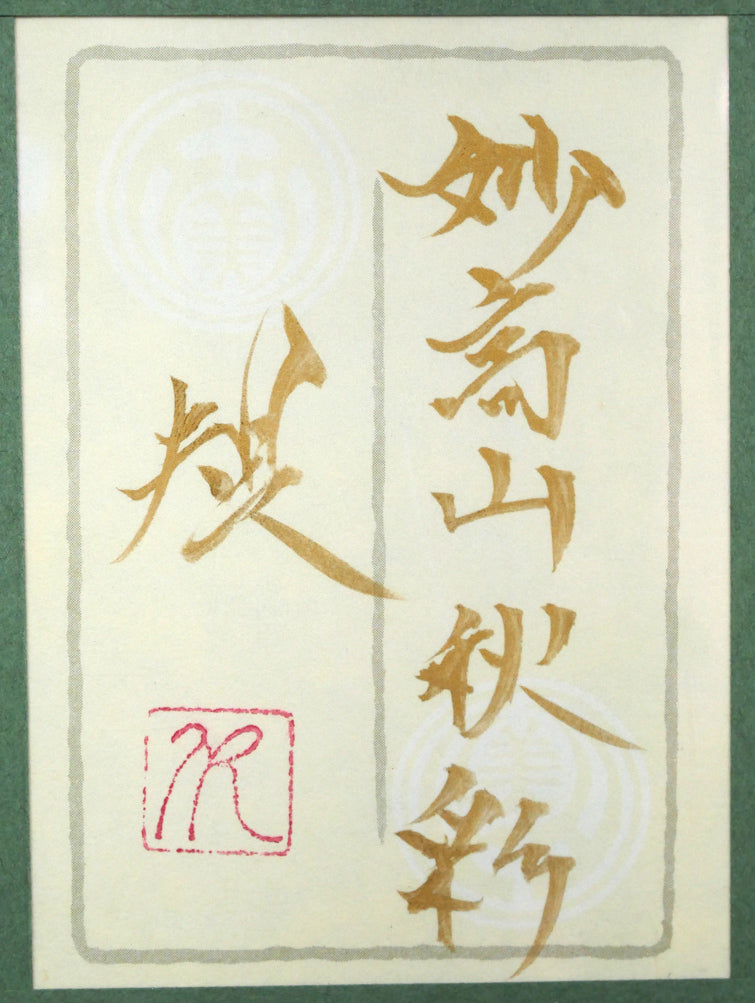 妙高山秋彩